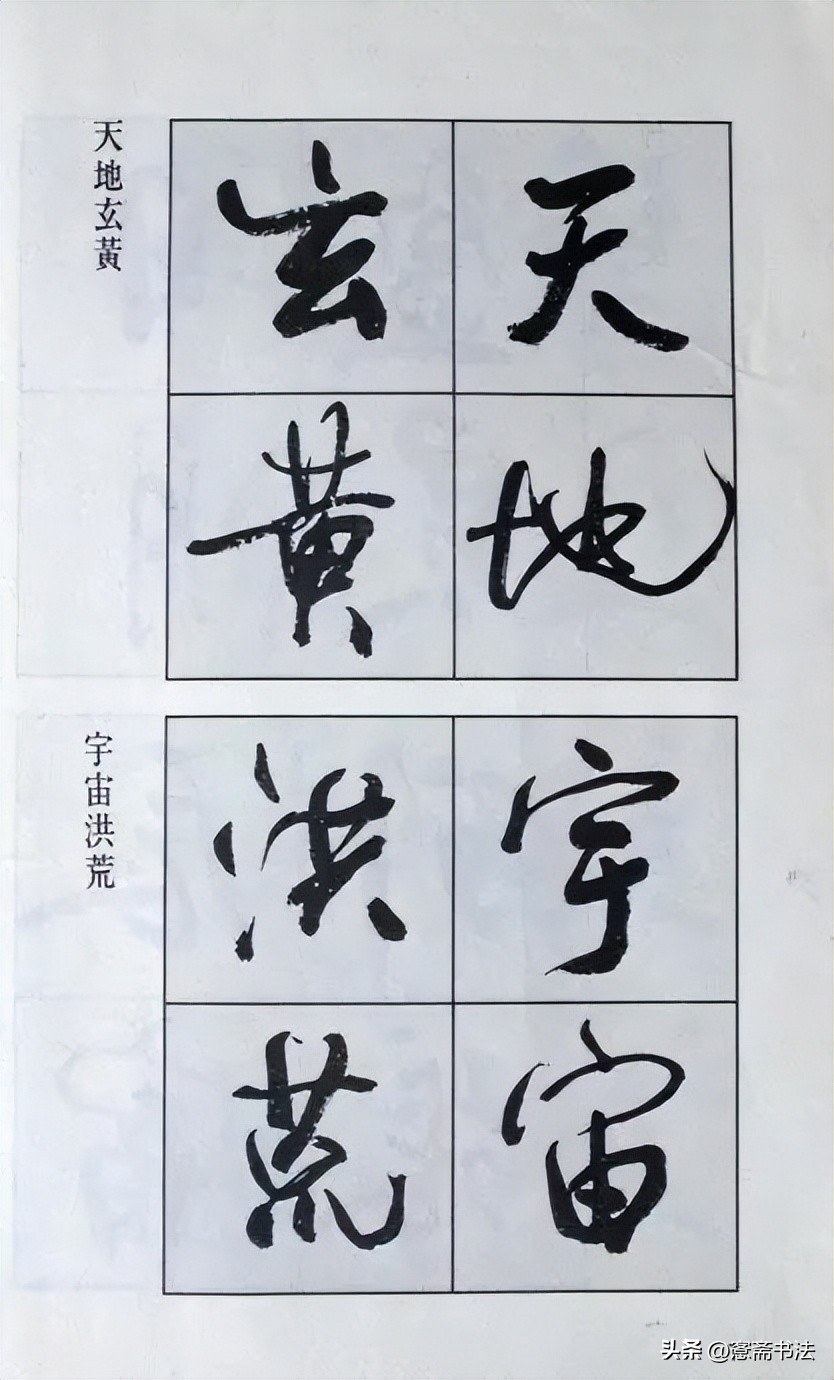 天地
玄黄
天地玄黃
宇宙
洪荒
宇宙洪荒
头条 @愙斋书法